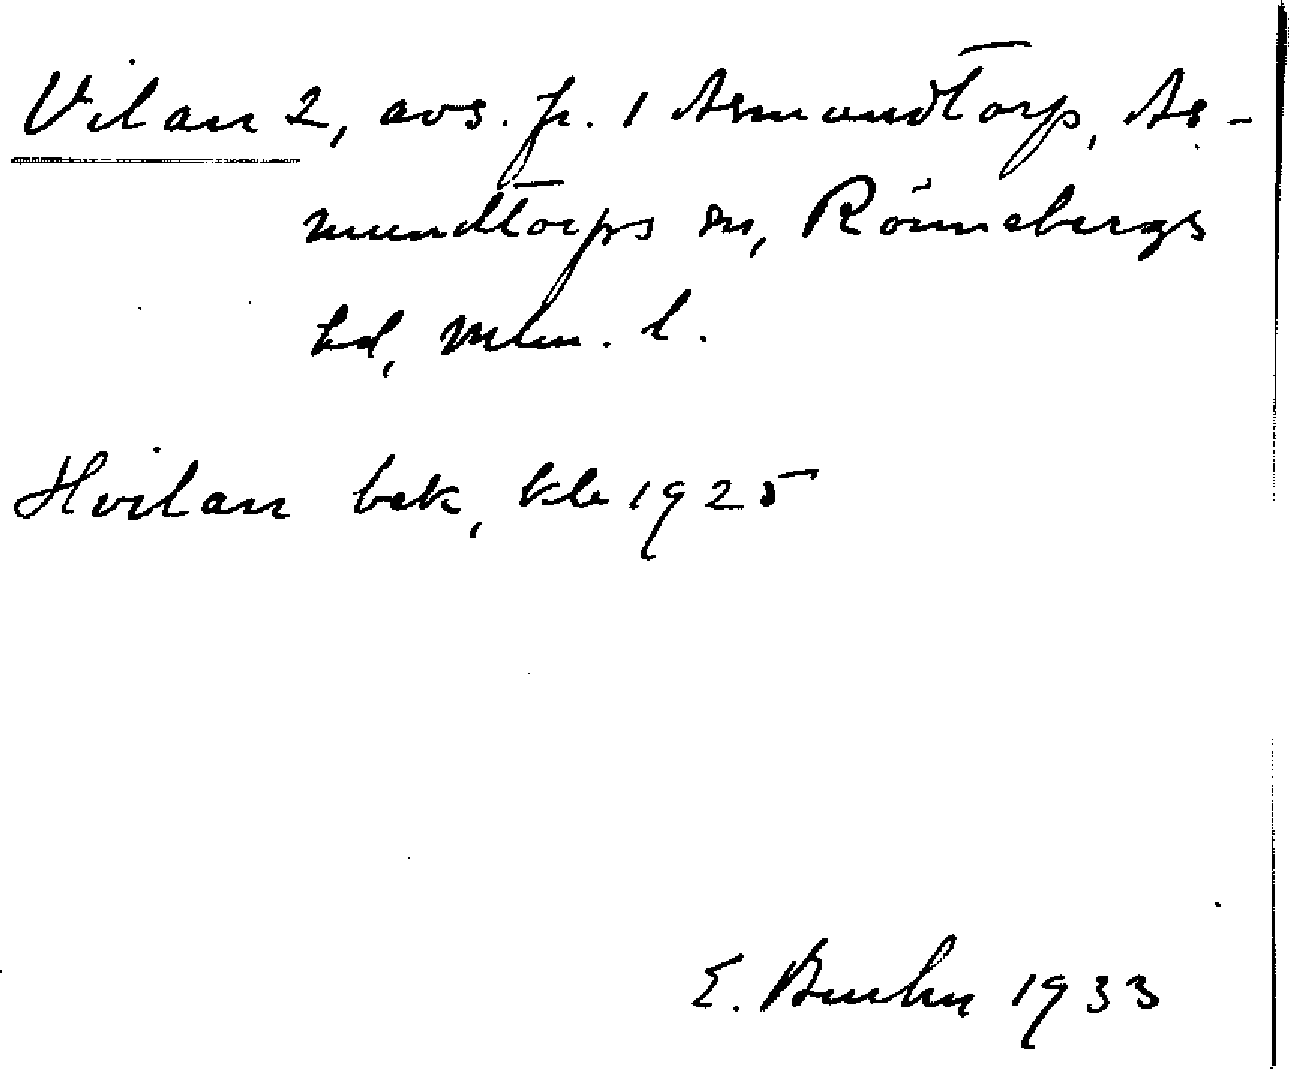 Vilan 2, avs. fr. 1 Asmundtorp, As-
mundtorps sn, Rönnebergs
hd, Mlm. l.
Hvilan bek, kb 1925
E. Buhn 1933